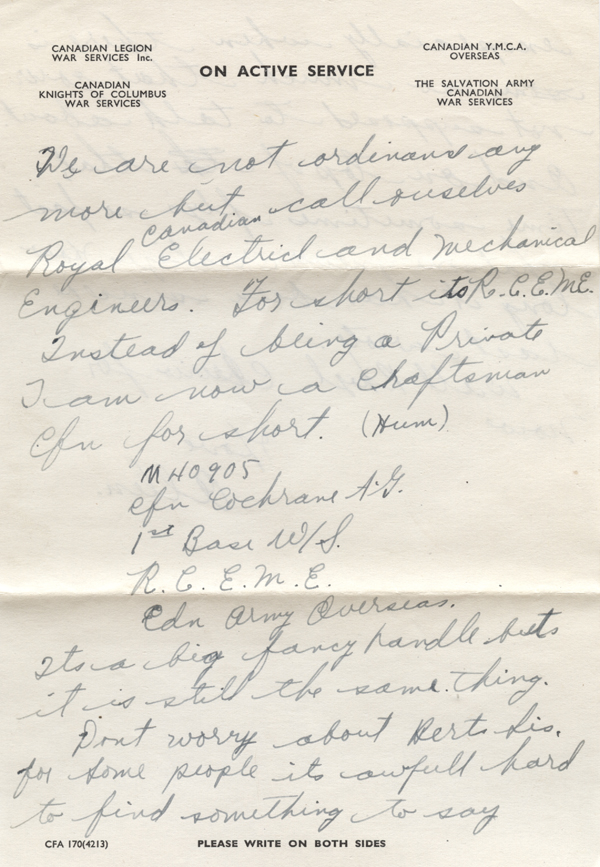 CANADIAN LEGION
WAR SERVICES Inc.
CANADIAN
KNIGHTS OF COLUMBUS
WAR SERVICES
ON ACTIVE SERVICE
CANADIAN Y.M.C.A.
OVERSEAS
THE SALVATION ARMY
CANADIAN
WAR SERVICES
We are not ordinans any
more but call ouselves
Canadian
Royal Electricl and Mechanical
Engineers. For short its R.C.E.M.E.
Instead of being a Private
I am now a Chraftsman
Cfn for short. (Hum)
M40905
Cfn Cochrane A.G.
1st Base W/S.
R.C.E.M.E.
Cdn Army Overseas.
Its a big fancy handle but
it is still the same thing.
Dont worry about Berts Sis.
for some people its awfull hard
to find something to say
CFA 170(4213)
PLEASE WRITE ON BOTH SIDES